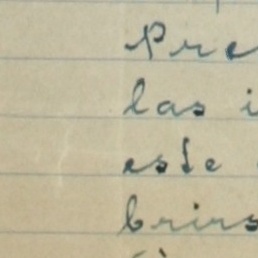 Pre
las i
este
brirs